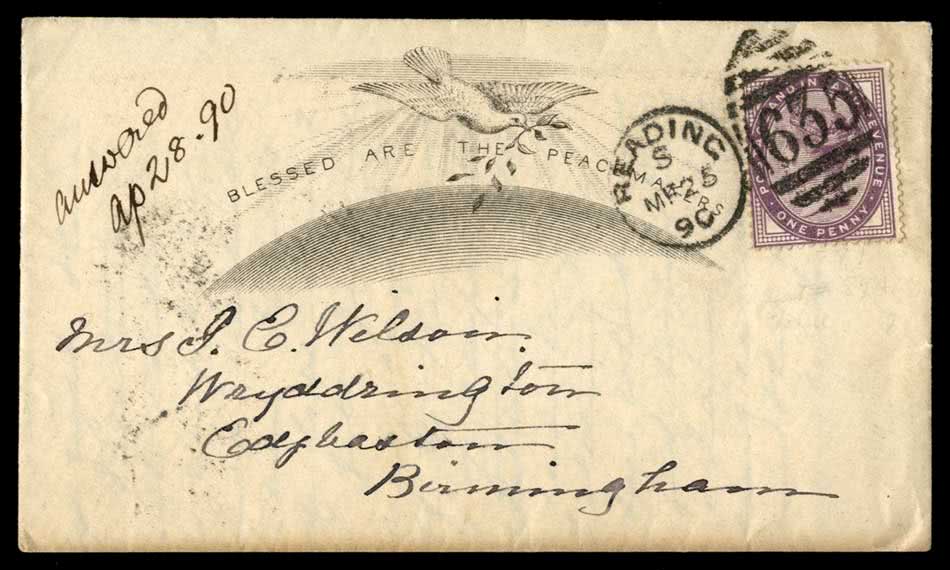 answered
ap 28-90
BLESSED ARE THE PEACEMAKERS
READING
S
MR 25
90
635
POSTAGE AND INLAND REVENUE
ONE PENNY
Mrs J. E. Wilson.
Wryddrington
Edgbaston
Birmingham